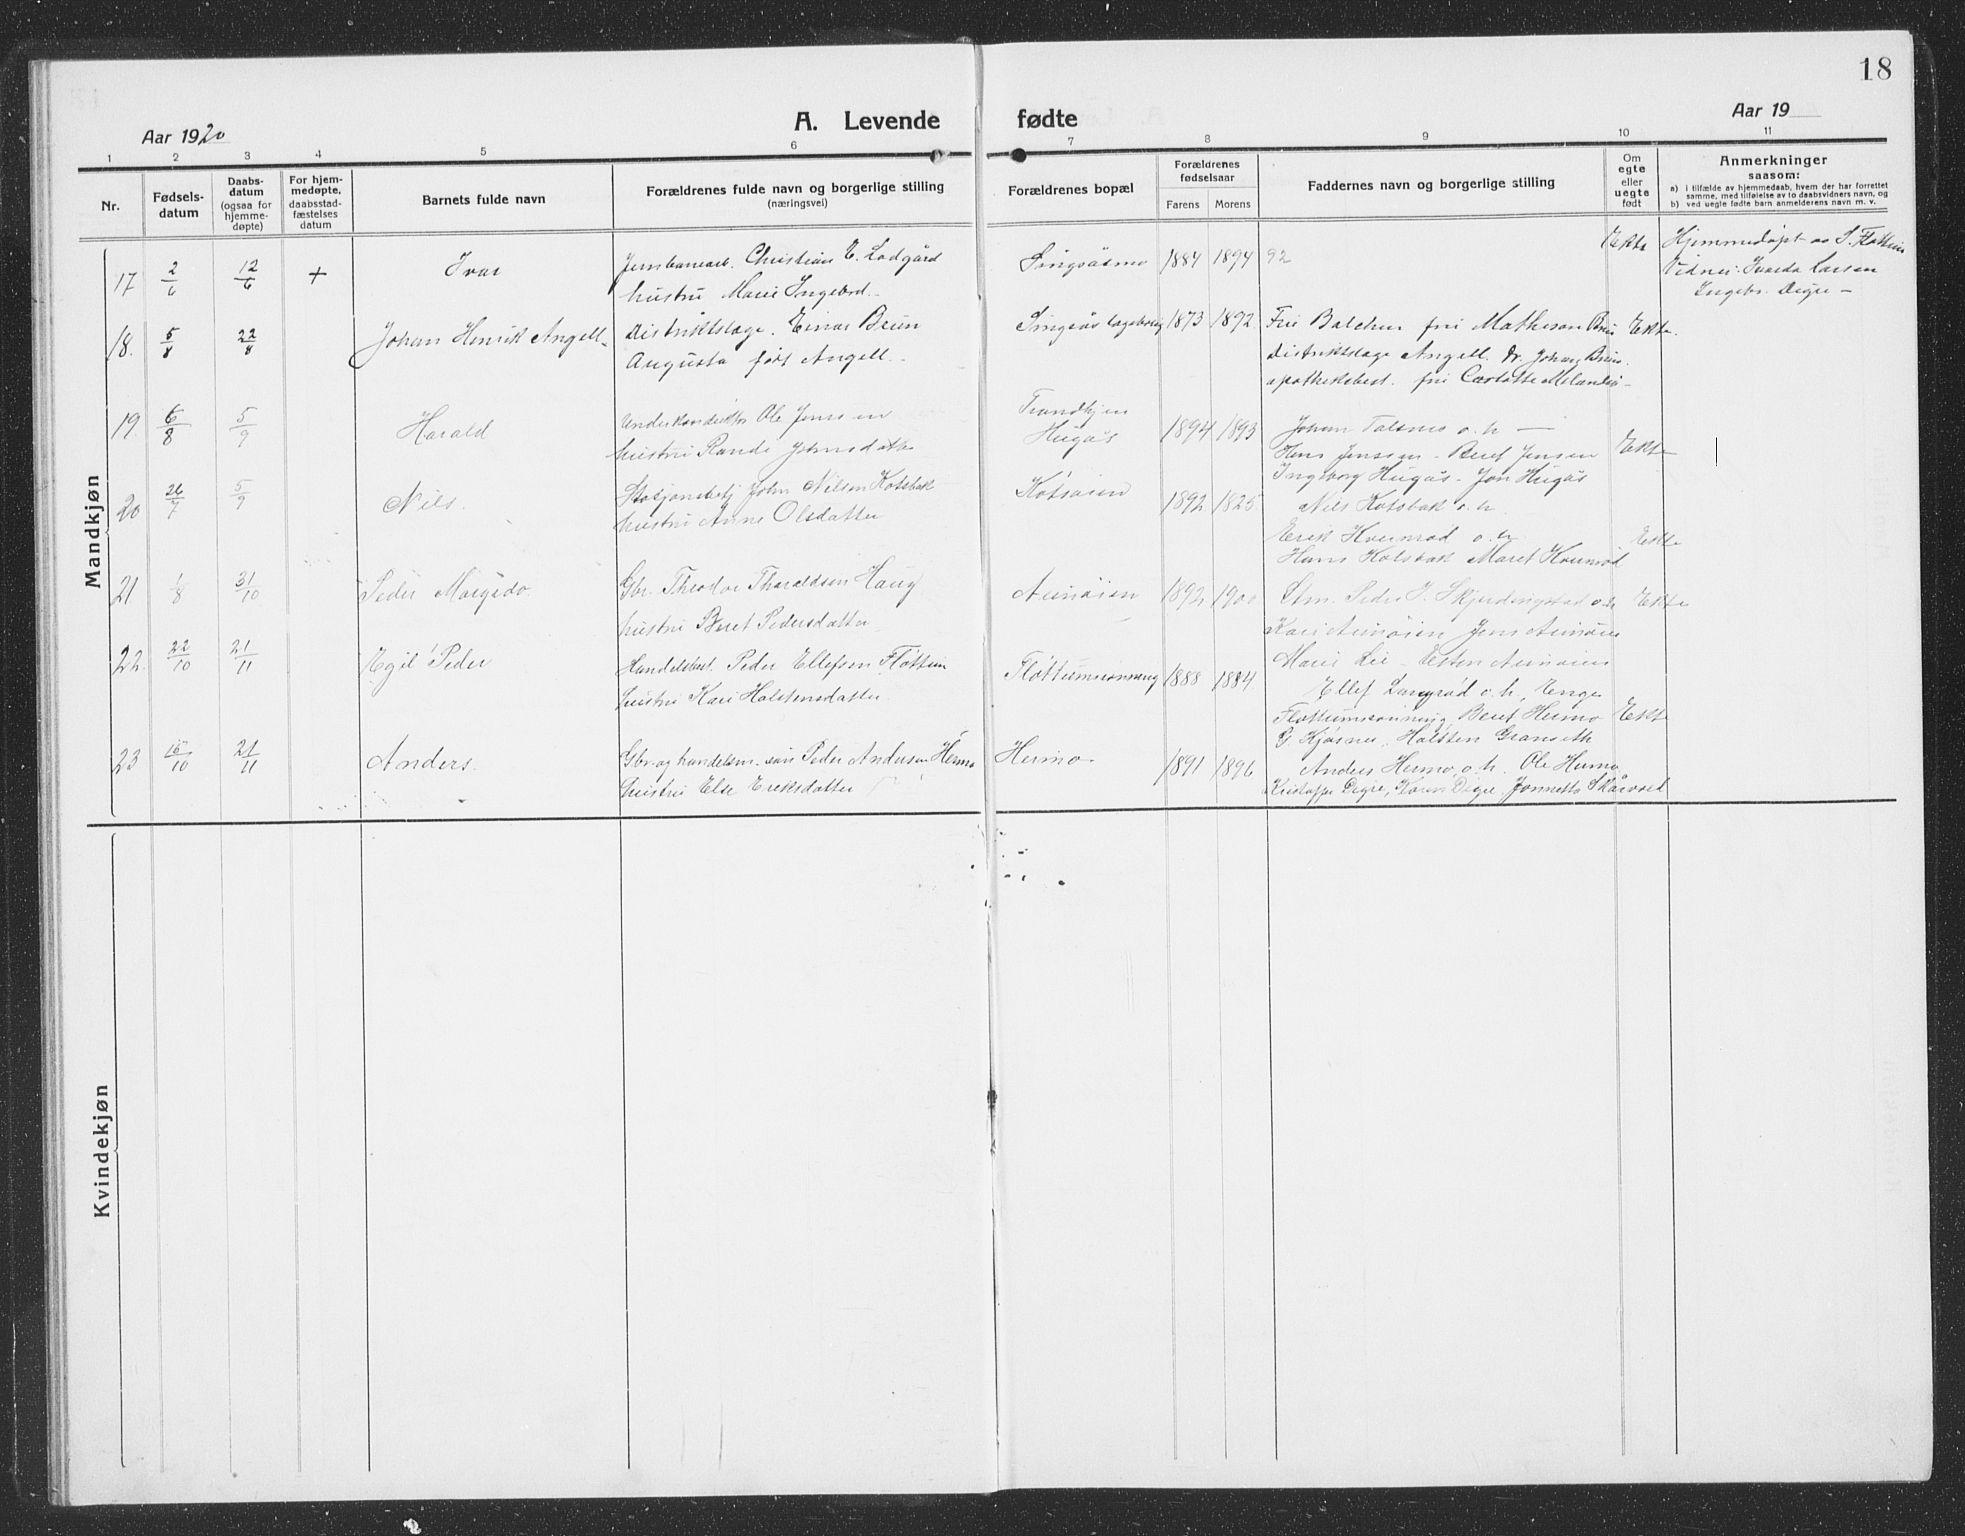 18
Aar 1920
A. Levende fødte
Aar 19
1 2 3 4 5 6 7 8 9 10 11
Nr.
Fødsels-
datum
Daabs-
datum
(ogsaa for
hjemme-
døpte)
For hjem-
medøpte,
daabsstad-
fæstelses
datum
Barnets fulde navn
Forældrenes fulde navn og borgerlige stilling
(næringsvei)
Forældrenes bopæl
Forældrenes
fødselsaar
Farens Morens
Faddernes navn og borgerlige stilling
Om
egte
eller
uegte
født
Anmerkninger
saasom:
a) i tilfælde av hjemmedaab, hvem der har forrettet
samme, med tilføielse av to daabsvidners navn, og
b) ved uegte fødte barn anmelderens navn m. v.
Mandkjøn
17 2/6 12/6 + Ivar
Jernbanearb. Christian E. Lodgård
hustru Marie Ingebrd.
Singsåsmo 1884 1894 92 Ekte
Hjemmedøpt av S. Fløttum
Vidner: Larsen
Ingebr. Digre -
18. 5/8 22/8 Johan Henrik Angell
Distriktslæge. Einar Brun
Augusta født Angell.
Singsås lægebolig 1873 1892
Fru Balchen fru Matheson Brun Ekte.
Distriktslæge Angell. Dr. Johan Brun.
apothekbest. fru Carlotte Melandsø
19. 6/8 5/9 Harald
Underkonduktør Ole Jenssen
hustru Randi Johnsdatter
Trondhjem
Hugås 1894 1893
Johan Talsnes o. h
Hans Jenssen - Beret Jensen Ekte
Ingeborg Hugås - Jon Hugås
20 26/7 5/9 Nils.
Stasjonsbetj John Nilsen Kotsbak
hustru Anne Olsdatter
Kotsøien 1892 1825
Nils Kotsbak o. h.
Erik Kvernrød o. h Ekte
Hans Kotsbak Maret Kvernrød
21 1/8 31/10 Peder Margido
Gbr. Theodor Tharaldsen Haug
hustru Beret Pedersdatter
Aunøien 1892 1900
Peder J. Skjerdingstad o. h Ekte
Kari Aunøien Jens Aunøien
Marie Lie - Aunøien
22. 22/10 21/11 Egil Peder
Handelsbest. Peder Ellefsen Fløttum
hustru Kari Halstensdatter
Fløttumsrønning 1888 1884
Ellef Langrød o. h, Enge
Fløttumsrønning, Beret Hermo Ekte
G Kjøsnes, Halsten Granseth
23 15/10 21/11 Anders.
Gbr. og handelsm. Peder Andersen Hermo
hustru Else Eriksdatter
Hermo 1891 1896
Anders Hermo, o. h. Ole Hermo
Kristoffer Digre, Karen Digre, Jonnetta Skårvold
Kvindekjøn